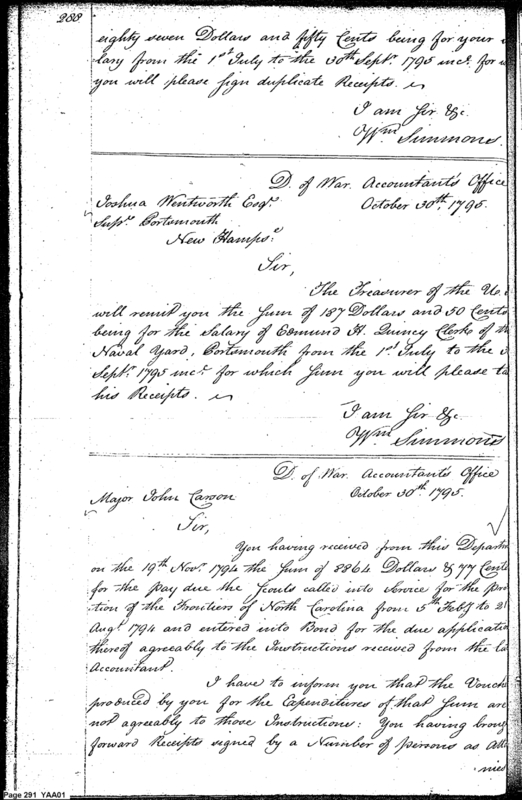 288
eighty seven Dollars and fifty Cents being for your
lary from the 1st July to the 30th Septr. 1795 incl. for
you will please sign duplicate Receipts.
I am Sir &c.
Wm Simmons.
D. of War. Accountant's Office
Joshua Wentworth Esqr.
October 30th. 1795.
Supr. Portsmouth
New Hamps:e
Sir,
The Treasurer of the U.
will remit you the Sum of 187 Dollars and 50 Cents
being for the Salary of Edmund H. Quincy Clerk of
Naval Yard, Portsmouth from the 1st July to the
Septr. 1795 incl. for which Sum you will please
his Receipts.
I am Sir &c
Wm Simmons
D. of War. Accountant's Office
Major John Carson
October 30th. 1795.
Sir,
You having received from this
on the 19th Novr. 1794 the Sum of 8864 Dollars & 77 Cents
for the pay due the Scouts called into Service for the
tion of the Frontiers of North Carolina from 5th Feby to
Augt. 1794 and entered into Bond for the due
thereof agreeably to the Instructions received from the
Accountant.
I have to inform you that the
produced by you for the Expenditures of that Sum are
not agreeably to those Instructions: You having
forward Receipts signed by a Number of persons as
nies
Page 291 YAA01